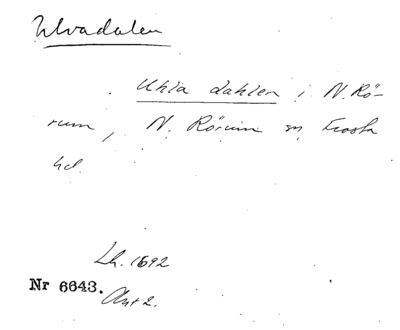 Ulvadalen
Uhla dahlen i N. Rö-
rum, N. Rörum sn, Frosta
hd.
Lh. 1692
Nr 6643.
Ant 2.